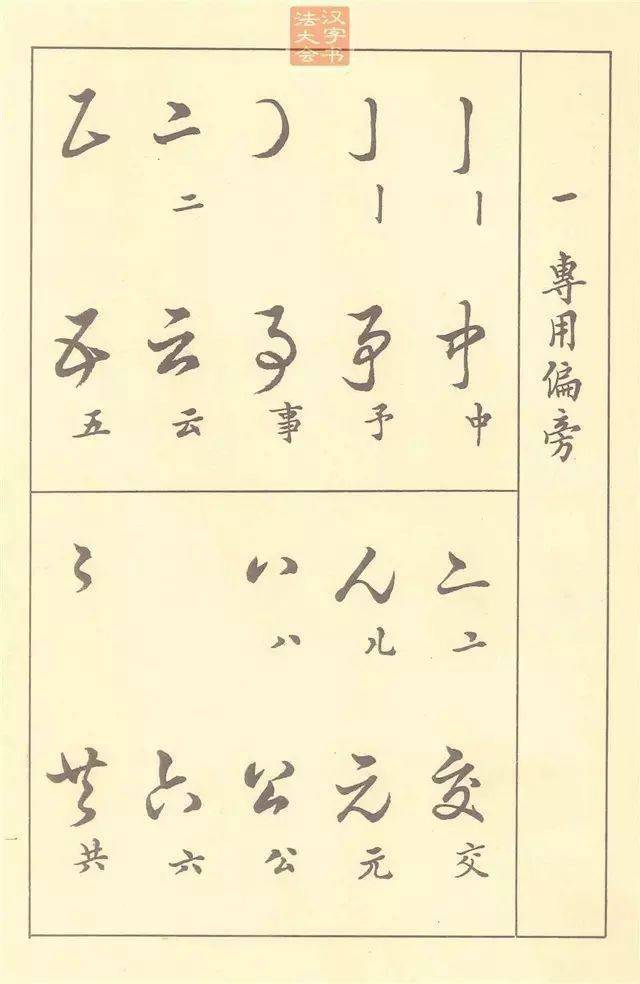 汉字书
法大会
一 專用偏旁
丨 亅 二
中 予 事 云 五
中 予 事 云 五
亠 儿 八
交 元 公 六 共
交 元 公 六 共
一